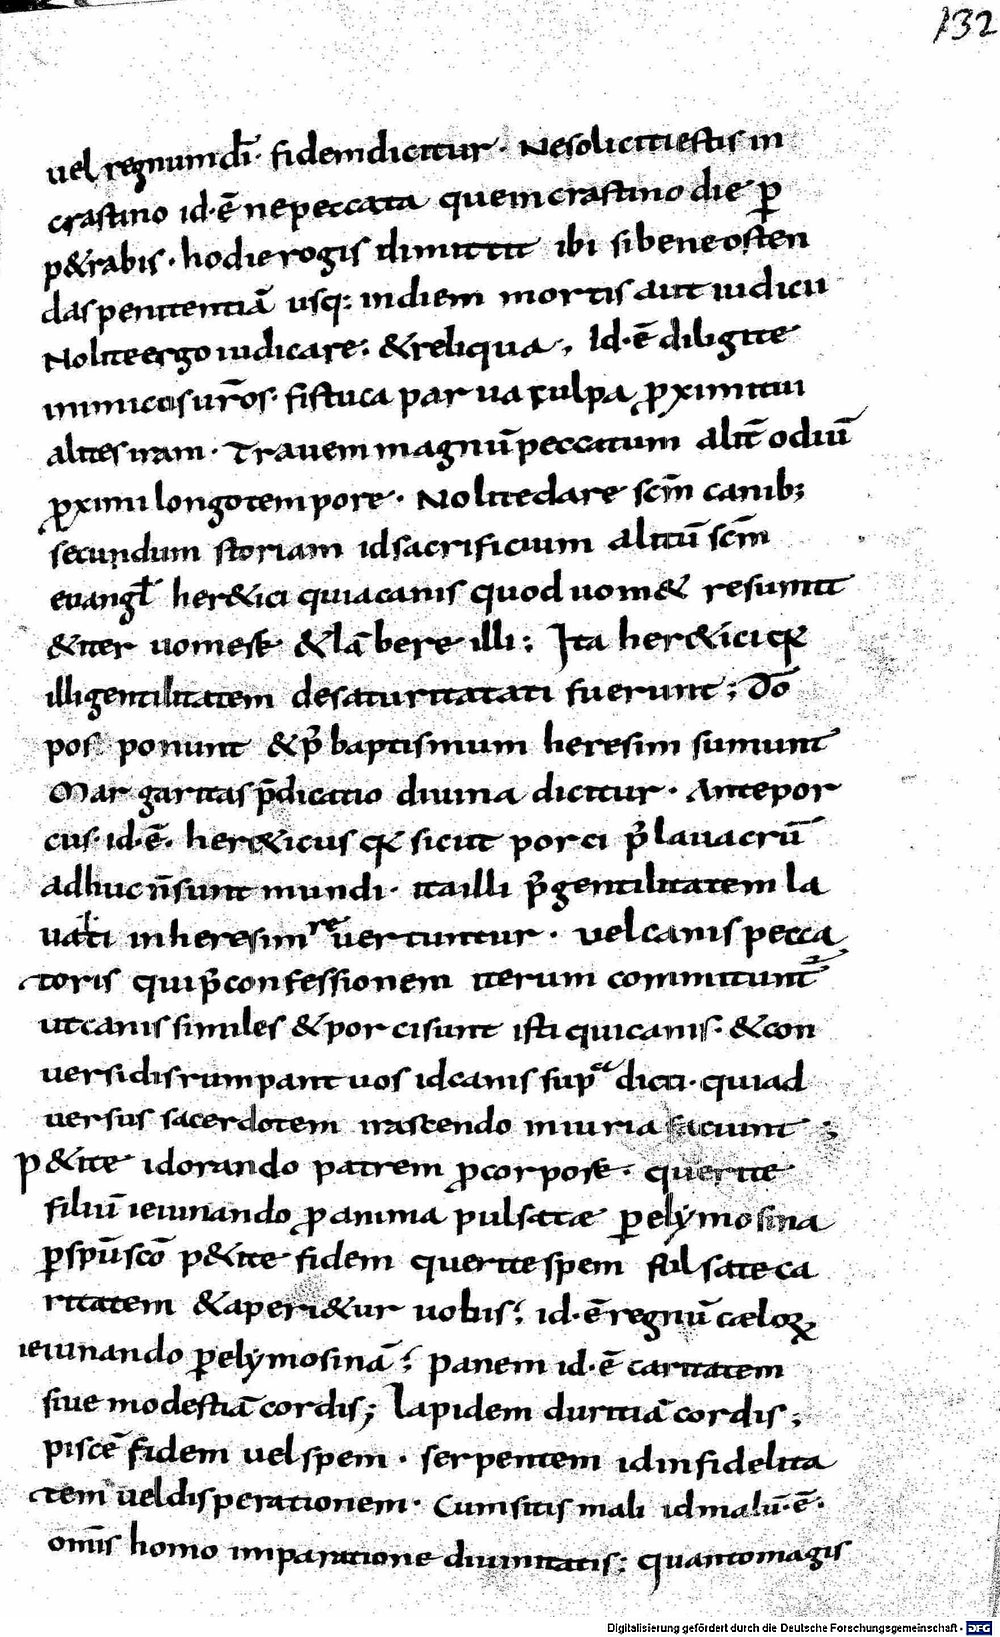 132
uel regnum dī· fidem dicitur· Nesoliciti estis in
crastino id·ē ne peccata quem crastino die ꝑ
p&rabis· hodie rogis dimittit ibi si bene osten
das penitentiā usq: in diem mortis aut iudicii
Nolite ergo iudicare· &reliqua, Id·ē diligite
inimicos ur̄os· fistuca parua culpa ꝓximi tui
alit es iram· Trauem magnū peccatum alit̄ odiū
ꝓximi longo tempore· Nolite dare scm̄ canib;
secundum storiam id sacrificium alitū scm̄
euangl̄ her&ici quia canis quod uom& resumit
&iter uomere &lābere illi; Ita her&ici qui
illi gentilitatem desaturitatati fuerunt; dō
pos ponunt &p̄ baptismum heresim sumunt
Margaritas p̄dicatio diuina dicitur· Ante por
cus· id·ē· her&icus qui sicut porci p̄ lauacrū
adhuc n̄ sunt mundi· ita illi p̄ gentilitatem la
uati in heresim reuertuntur· uel canis pecca
toris qui p̄ confessionem iterum committunt
ut canis similes &porci sunt isti qui canis· &con
uersi disrumpant uos id canis sup̄a dicti· qui ad
uersus sacerdotem irascendo iniuria faciunt;
p&ite id orando patrem ꝓ corpore· querite
filiū ieiunando ꝓ anima pulsatæ ꝑ elymosina
ꝑ spūscō p&ite fidem querite spem pulsate ca
ritatem &aperi&ur uobis; id·ē regnū cæloꝝ
ieiunando ꝑ elymosinā; panem id·ē caritatem
siue modestiā cordis; Lapidem duritiā cordis;
piscē fidem uel spem· serpentem id infidelita
tem uel disperationem· Cum sitis mali id malū·ē·
omīs homo inparatione diuinitatis; quanto magis
Digitalisierung gefördert durch die Deutsche Forschungsgemeinschaft - DFG